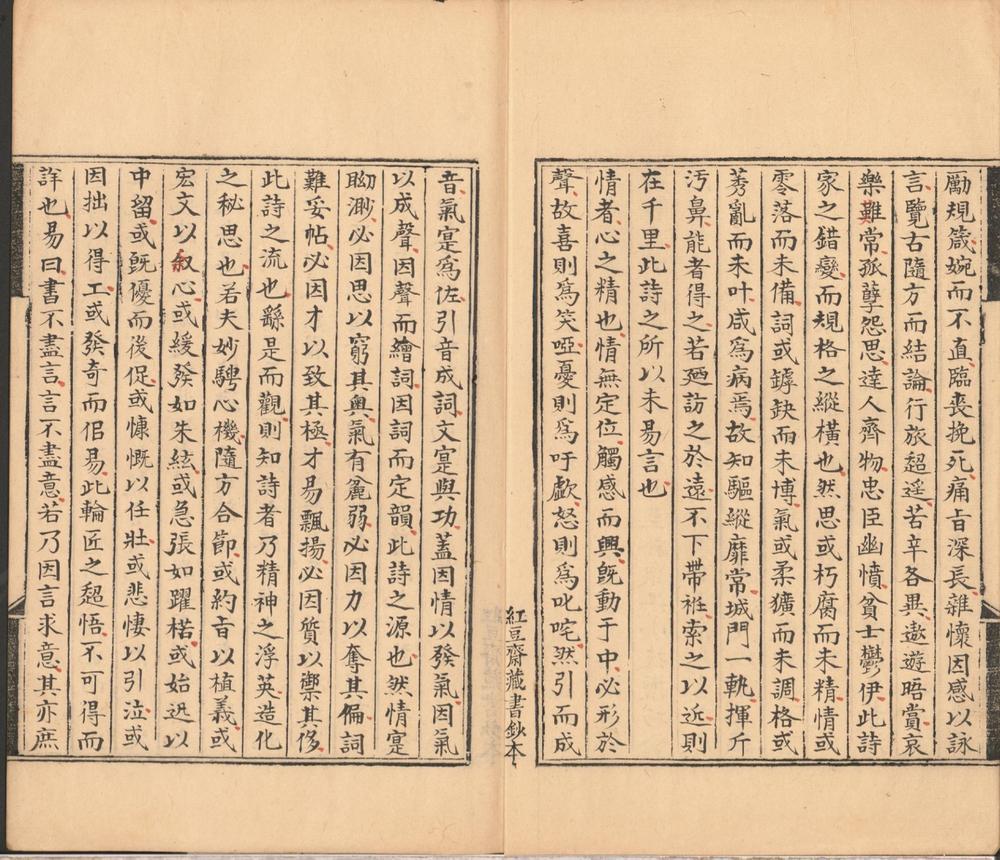 勵規箴婉而不直臨喪挽死痛旨深長雜懷因感以詠
言覽古隨方而結論行旅超遥苦辛各異遨遊晤賞哀
樂難常孤孽怨思達人齊物忠臣幽憤貧士鬱伊此詩
家之錯變而規格之縱橫也然思或朽腐而未精情或
零落而未備詞或罅缺而未博氣或柔獷而未調格或
莠亂而未叶咸爲病焉故知驅縱靡常城門一軌揮斤
汚鼻能者得之若廼訪之於遠不下帶袵索之以近則
在千里此詩之所以未易言也
情者心之精也情無定位觸感而興既動于中必形於
聲故喜則爲笑啞憂則爲吁歔怒則爲叱咤然引而成
紅豆齋藏書鈔本
音氣寔爲佐引音成詞文寔與功蓋因情以發氣因氣
以成聲因聲而繪詞因詞而定韻此詩之源也然情寔
眑渺必因思以窮其奥氣有麄弱必因力以奪其偏詞
難妥帖必因才以致其極才易飄揚必因質以禦其侈
此詩之流也繇是而觀則知詩者乃精神之浮英造化
之秘思也若夫妙騁心機隨方合節或約旨以植義或
宏文以叙心或緩發如朱絃或急張如躍楛或始迅以
中留或既優而後促或慷慨以任壯或悲悽以引泣或
因拙以得工或發奇而佀易此輪匠之超悟不可得而
詳也易曰書不盡言言不盡意若乃因言求意其亦庶